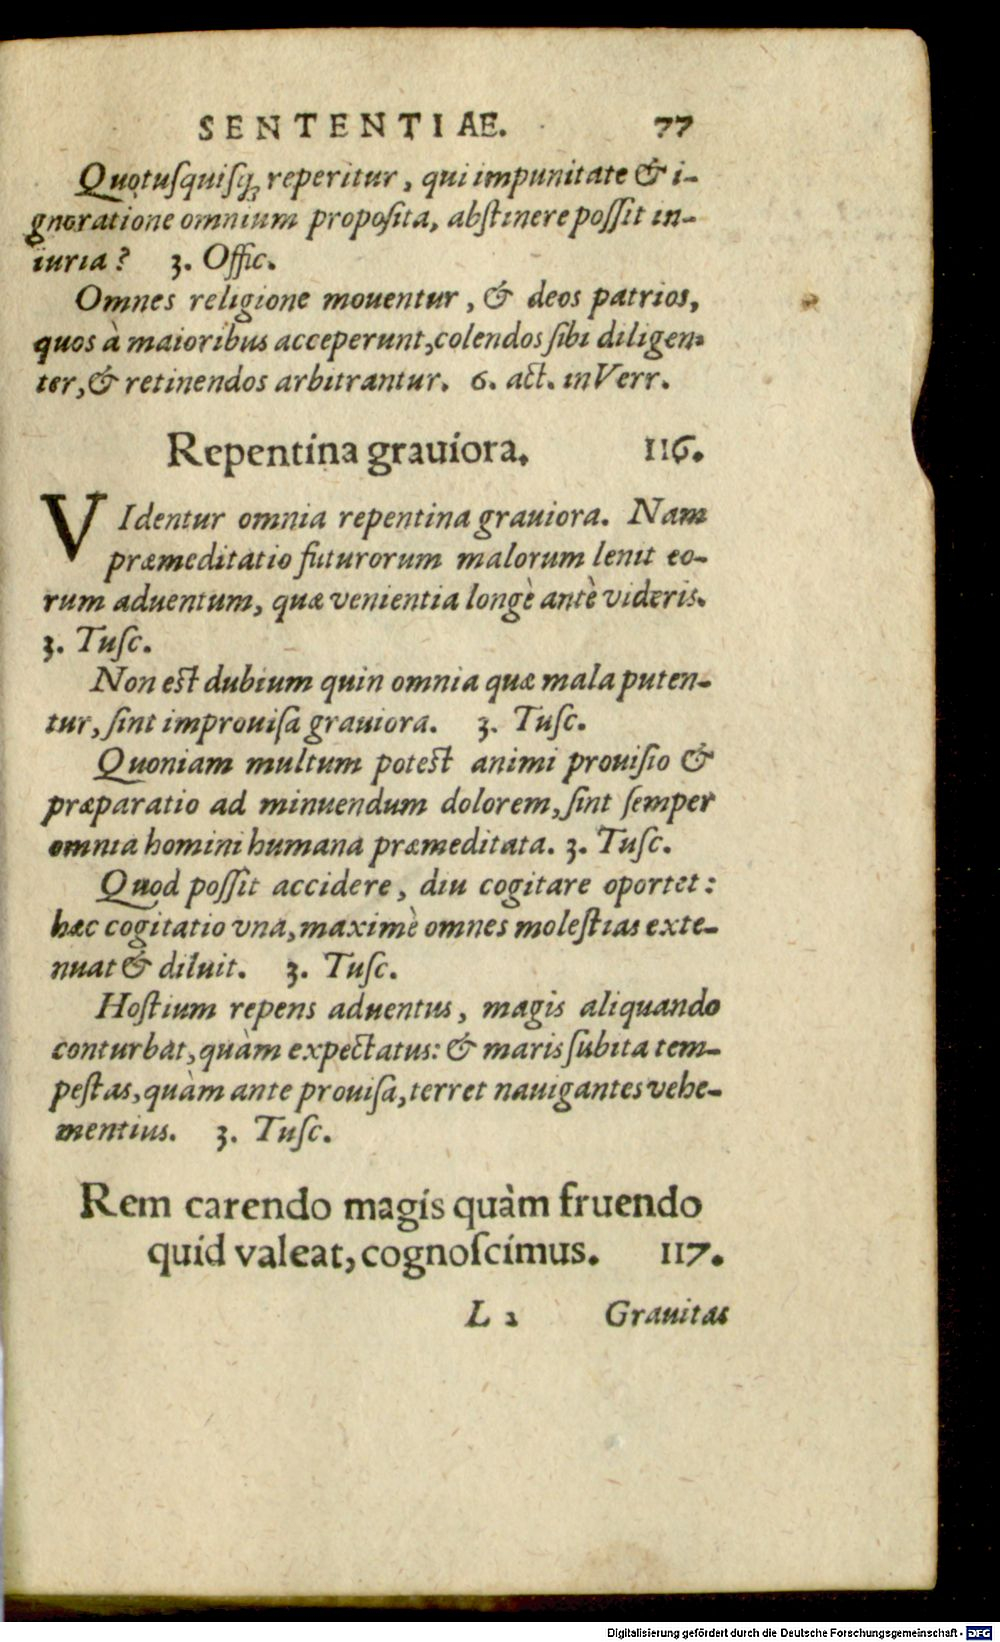 SENTENTIAE. 77
Quotuſquiſq; reperitur, qui impunitate & i-
gnoratione omnium propoſita, abſtinere poſſit in-
iuria? 3. Offic.
Omnes religione mouentur, & deos patrios,
quos à maioribus acceperunt, colendos ſibi diligen-
ter, & retinendos arbitrantur. 6. act. in Verr.
Repentina grauiora. 116.
VIdentur omnia repentina grauiora. Nam
præmeditatio futurorum malorum lenit eo-
rum aduentum, quæ venientia longè antè videris.
3. Tuſc.
Non est dubium quin omnia quæ mala puten-
tur, ſint improuiſa grauiora. 3. Tuſc.
Quoniam multum potest animi prouiſio &
præparatio ad minuendum dolorem, ſint ſemper
omnia homini humana præmeditata. 3. Tuſc.
Quod poſſit accidere, diu cogitare oportet:
hæc cogitatio vna, maximè omnes moleſtias exte-
nuat & diluit. 3. Tuſc.
Hoſtium repens aduentus, magis aliquando
conturbat, quàm expectatus: & maris ſubita tem-
peſtas, quàm ante prouiſa, terret nauigantes vehe-
mentius. 3. Tuſc.
Rem carendo magis quàm fruendo
quid valeat, cognoſcimus. 117.
L 2 Grauitas
Digitalisierung gefördert durch die Deutsche Forschungsgemeinschaft - DFG